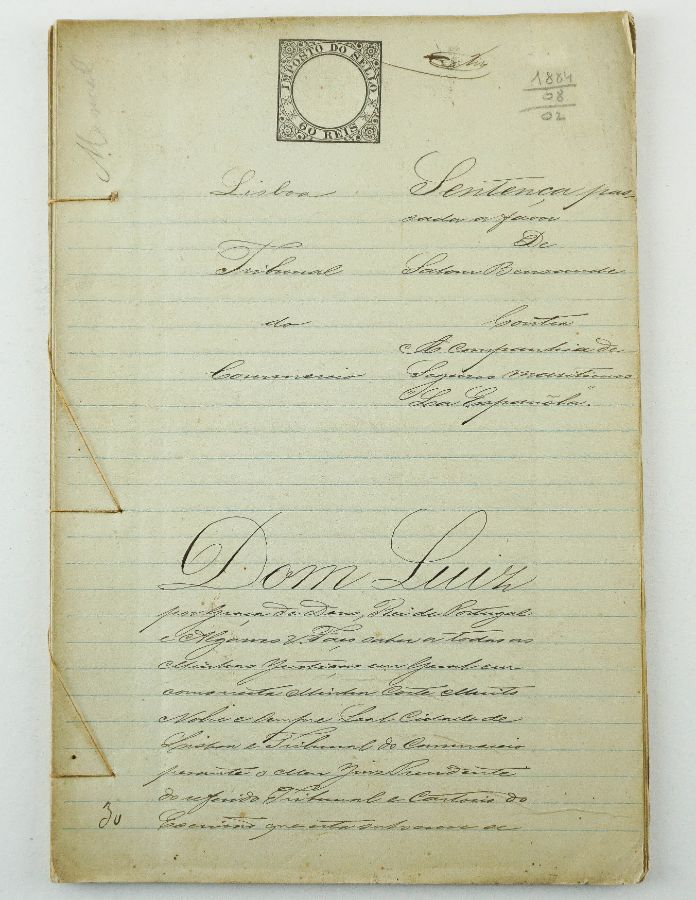 IMPOSTO DO SELLO
60 REIS
1884
08
02
Manuel
Lisboa
Tribunal
do
Commercio
Sentença, pas-
sada a favor
De
Salom Bensaude
Contra
A companhia de
Seguros maritimos
"La Española".
Dom Luiz
por Graça de Deus, Rei de Portugal
e Algarves &. Faço saber a todas as
Minhas Justiças em Geral em
como nesta Minha Corte Muito
Nobre e Sempre Leal Cidade de
Lisboa e Tribunal do Commercio
perante o Meu Juiz Presidente
do referido Tribunal e Cartorio do
Escrivão que esta subscreve se
30